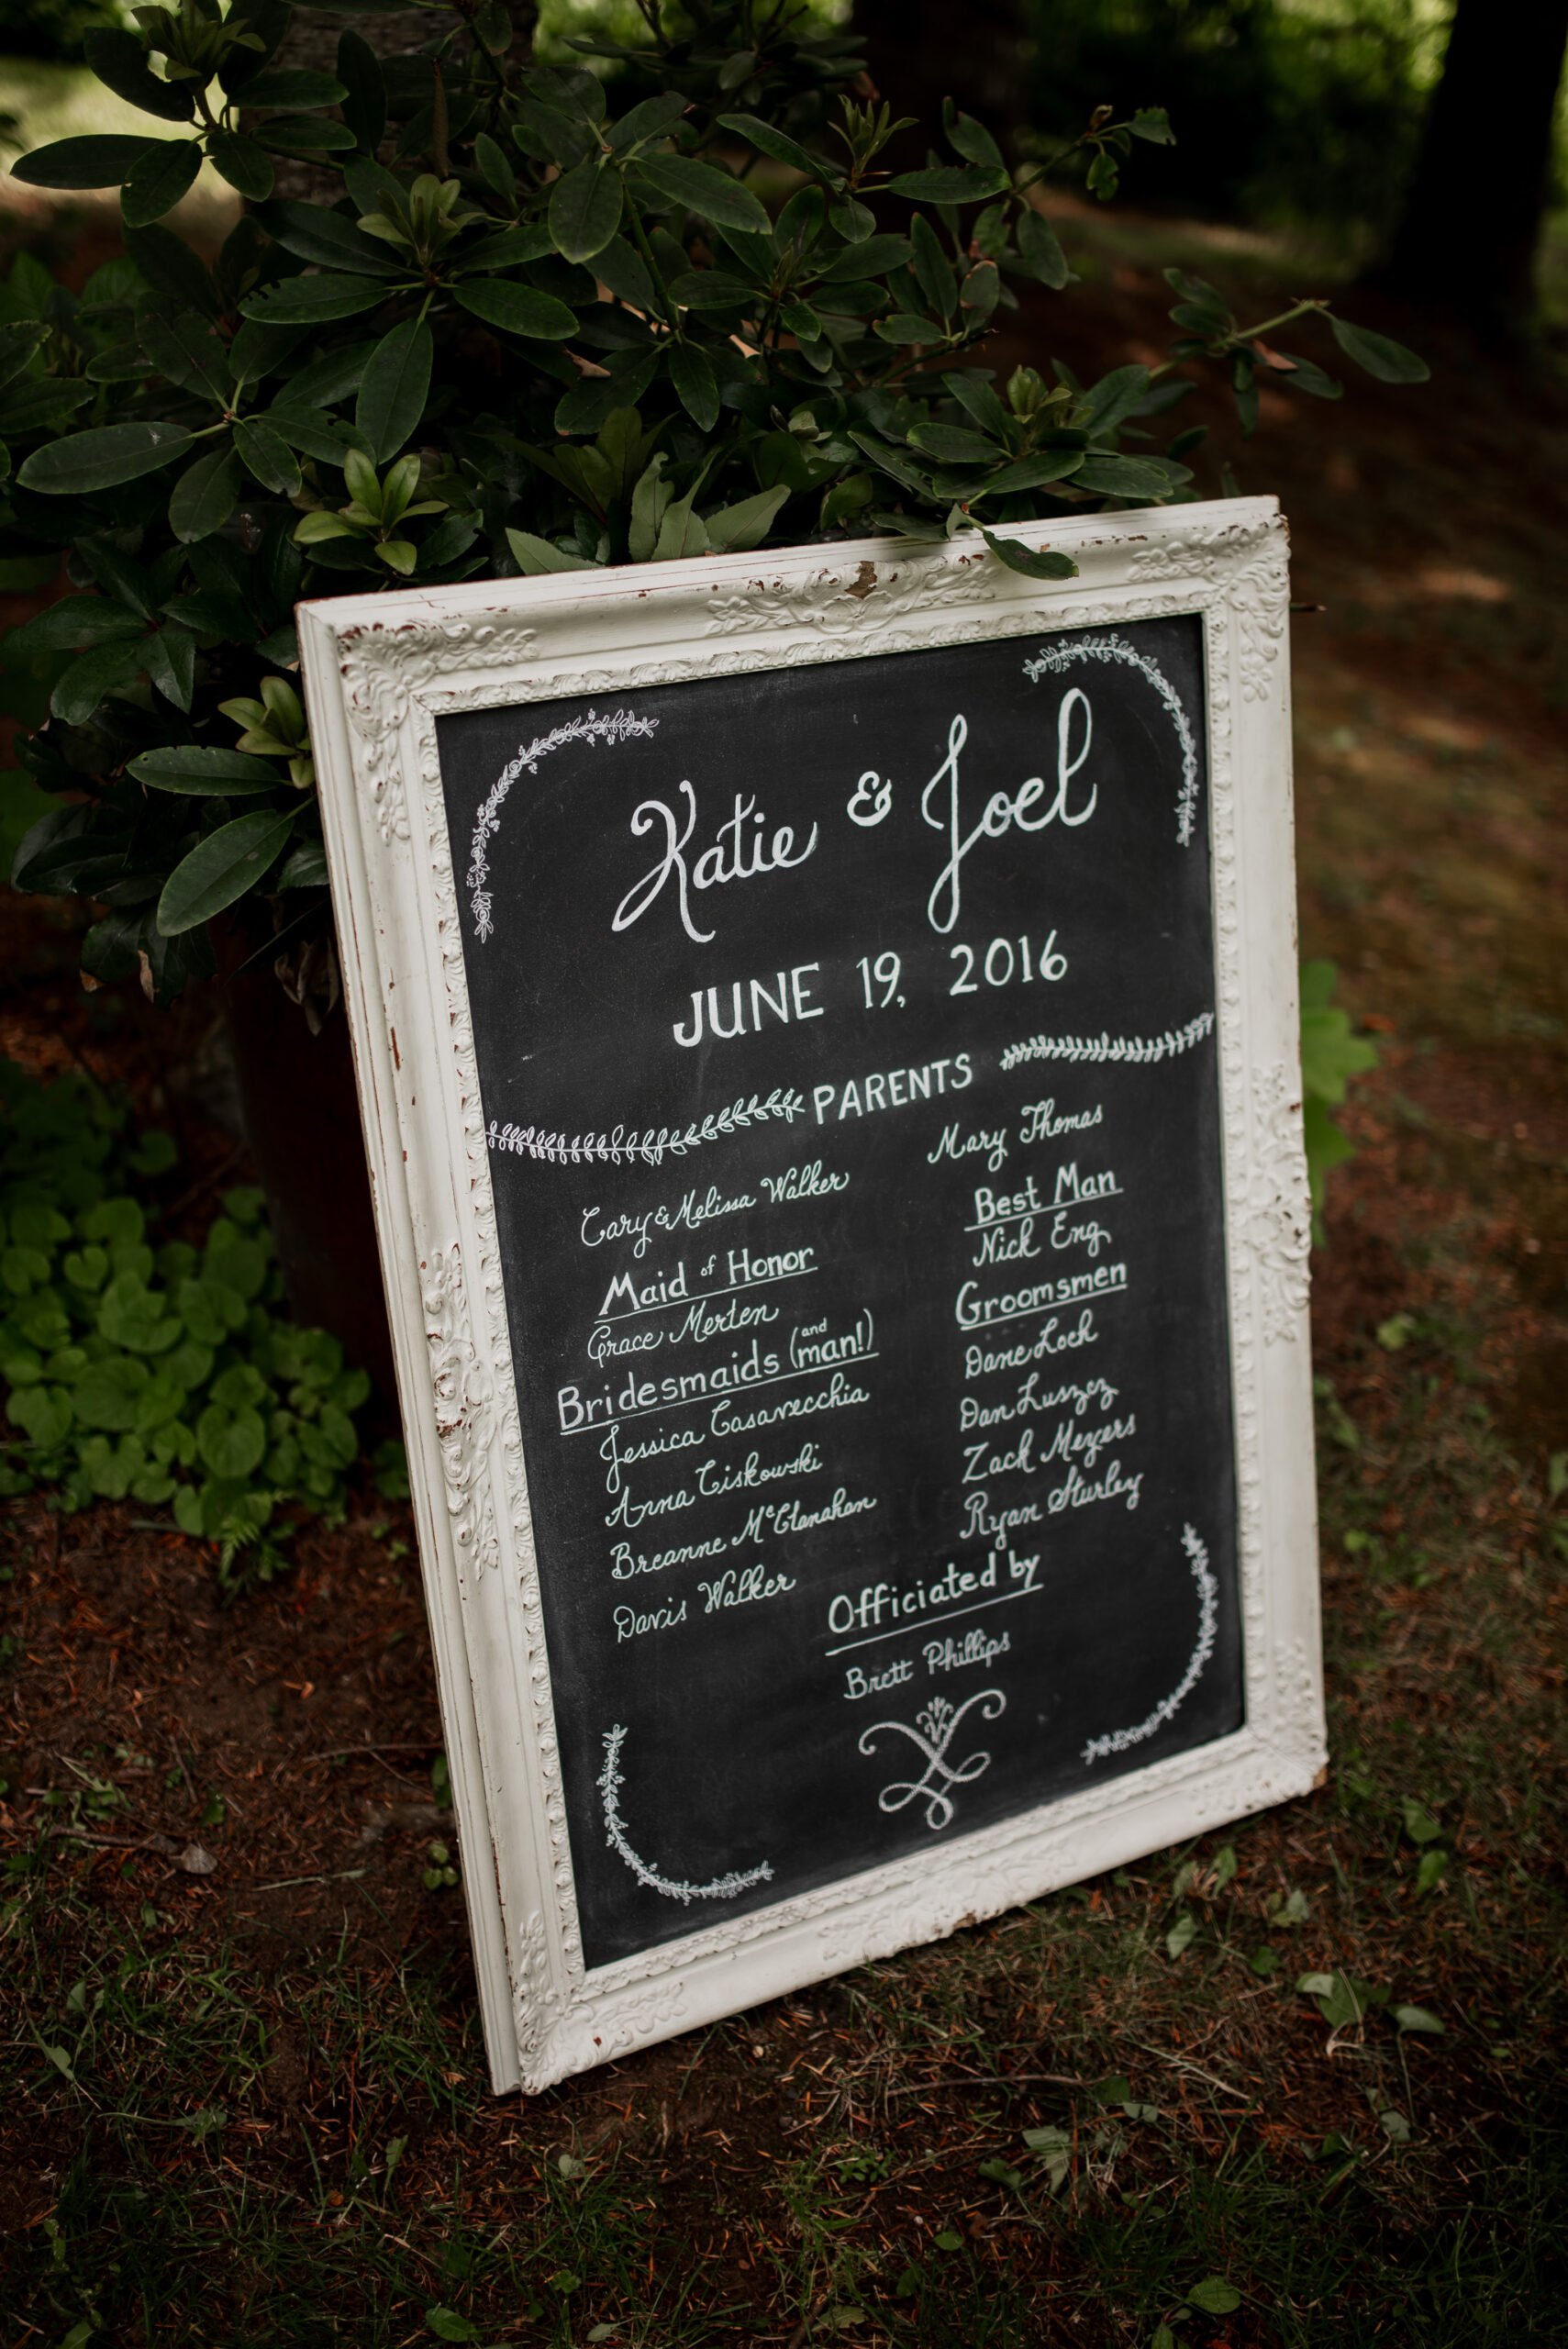 Katie & Joel
JUNE 19, 2016
PARENTS
Cary & Melissa Walker
Maid of Honor
Grace Merten
Bridesmaids (and man!)
Jessica Casavecchia
Anna Ciskowski
Breanne McClenahan
Davis Walker
Mary Thomas
Best Man
Nick Eng
Groomsmen
Dane Loch
Dan Luszcz
Zack Meyers
Ryan Sturley
Officiated by
Brett Phillips